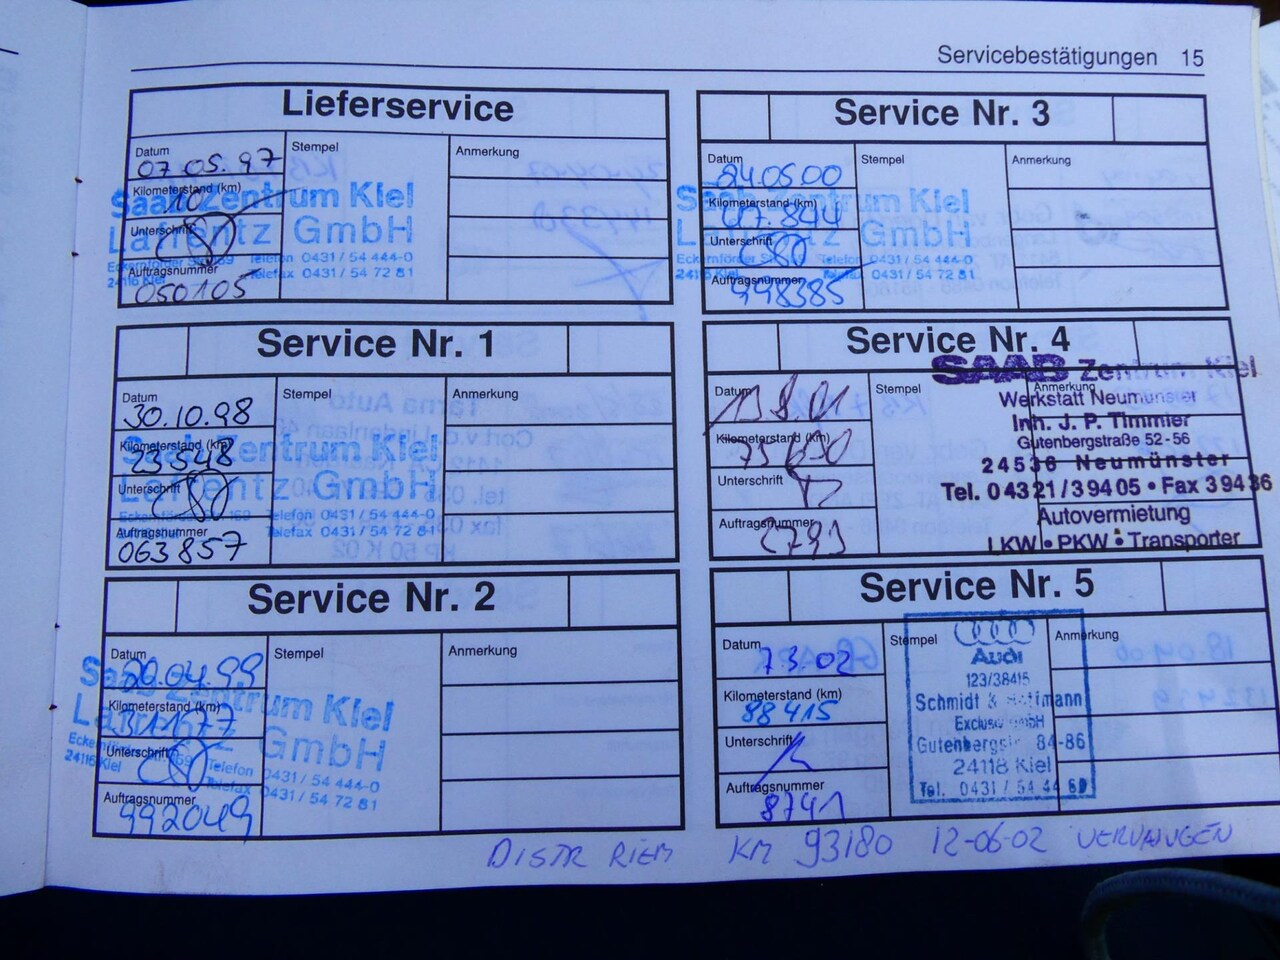 Servicebestätigungen 15
Lieferservice
Datum
07.05.97
Kilometerstand (km)
10
Unterschrift
Auftragsnummer
050105
Stempel
Anmerkung
Saab Zentrum Kiel
Lafrentz GmbH
Eckernförder Str. 169 Telefon 0431 / 54 444-0
24116 Kiel Telefax 0431 / 54 72 81
Service Nr. 1
Datum
30.10.98
Kilometerstand (km)
23548
Unterschrift
Auftragsnummer
063857
Stempel
Anmerkung
Saab Zentrum Kiel
Lafrentz GmbH
Eckernförder Str. 169 Telefon 0431 / 54 444-0
Telefax 0431 / 54 72 81
Service Nr. 2
Datum
20.04.99
Kilometerstand (km)
31177
Unterschrift
Auftragsnummer
992049
Stempel
Anmerkung
Saab Zentrum Kiel
Lafrentz GmbH
Telefon 0431 / 54 444-0
24116 Kiel Telefax 0431 / 54 72 81
Service Nr. 3
Datum
24.05.00
Kilometerstand (km)
Unterschrift
Auftragsnummer
998385
Stempel
Anmerkung
Saab Zentrum Kiel
Lafrentz GmbH
Eckernförder Str. 169 Telefon 0431 / 54 444-0
24116 Kiel Telefax 0431 / 54 72 81
Service Nr. 4
Datum
Kilometerstand (km)
Unterschrift
Auftragsnummer
2793
Stempel
Anmerkung
SAAB Zentrum Kiel
Werkstatt Neumünster
Inh. J. P. Timmier
Gutenbergstraße 52-56
24536 Neumünster
Tel. 04321/39405 • Fax 39436
Autovermietung
LKW • PKW • Transporter
Service Nr. 5
Datum
7.3.02
Kilometerstand (km)
88415
Unterschrift
Auftragsnummer
8741
Stempel
Anmerkung
Audi
123/38415
Schmidt &
Gutenbergstr. 84-86
24118 Kiel
Tel. 0431 / 54 44 80
DISTR RIEM KM 93180 12-06-02 VERVANGEN